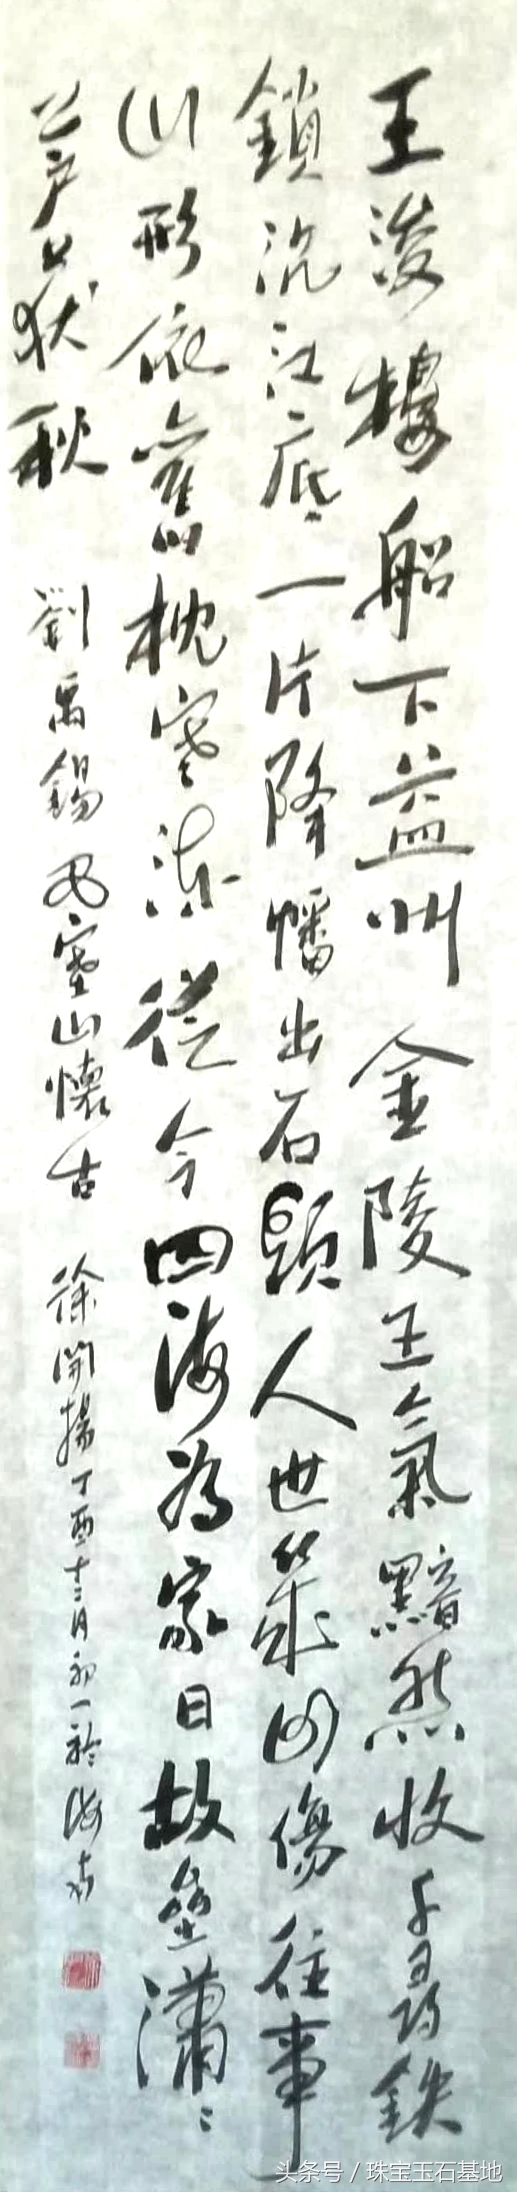 王浚樓船下益州金陵王氣黯然收千尋鉄
鎖沉江底一片降幡出石頭人世幾回傷往事
山形依舊枕寒流從今四海為家日故壘瀟〻
芦荻秋 劉禹錫西塞山懷古 徐開揚丁酉十二月初一於海
头条号 / 珠宝玉石基地